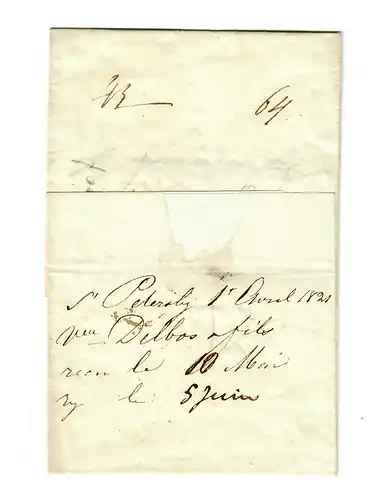 64
St Petersbg 1r Avril 1821
Veu Delbos & fils
recu le 10 Mai
rp le: 5 Juin